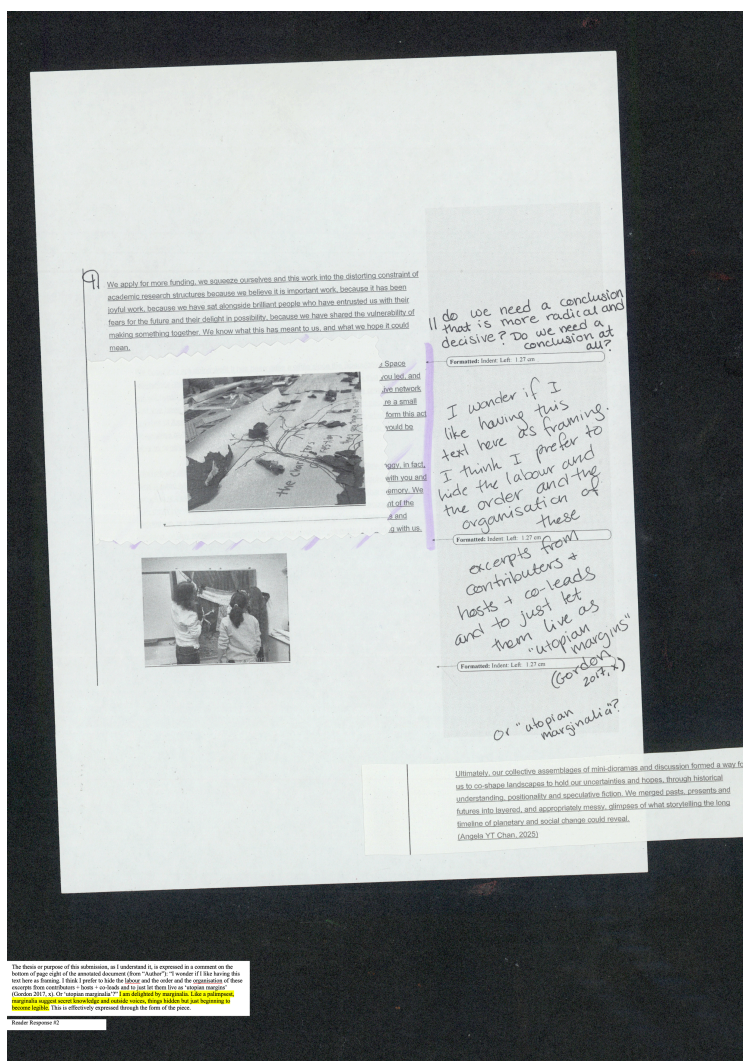 We apply for more funding, we squeeze ourselves and this work into the distorting constraint of
academic research structures because we believe it is important work, because it has been
joyful work, because we have sat alongside brilliant people who have entrusted us with their
fears for the future and their delight in possibility, because we have shared the vulnerability of
making something together. We know what this has meant to us, and what we hope it could
mean.
Space
you led, and
ive network
re a small
form this act
would be
in fact,
with you and
emory. We
nt of the
s and
g with us.
the
11 do we need a conclusion
that is more radical and
decisive? Do we need a
conclusion at
all?
Formatted: Indent: Left: 1.27 cm
I wonder if I
like having this
text here as framing.
I think I prefer to
hide the labour and
the order and the
organisation of
these
Formatted: Indent: Left: 1.27 cm
excerpts from
contributers +
hosts + co-leads
and to just let
them live as
"utopian
margins"
Formatted: Indent: Left: 1.27 cm
(Gordon
2017, x)
Or "utopian
marginalia"?
Ultimately, our collective assemblages of mini-dioramas and discussion formed a way fo
us to co-shape landscapes to hold our uncertainties and hopes, through historical
understanding, positionality and speculative fiction. We merged pasts, presents and
futures into layered, and appropriately messy, glimpses of what storytelling the long
timeline of planetary and social change could reveal.
(Angela YT Chan, 2025)
The thesis or purpose of this submission, as I understand it, is expressed in a comment on the
bottom of page eight of the annotated document (from "Author"): "I wonder if I like having this
text here as framing. I think I prefer to hide the labour and the order and the organisation of these
excerpts from contributors + hosts + co-leads and to just let them live as 'utopian margins'
(Gordon 2017, x). Or 'utopian marginalia'?" I am delighted by marginalia. Like a palimpsest,
marginalia suggest secret knowledge and outside voices, things hidden but just beginning to
become legible. This is effectively expressed through the form of the piece.
Reader Response #2